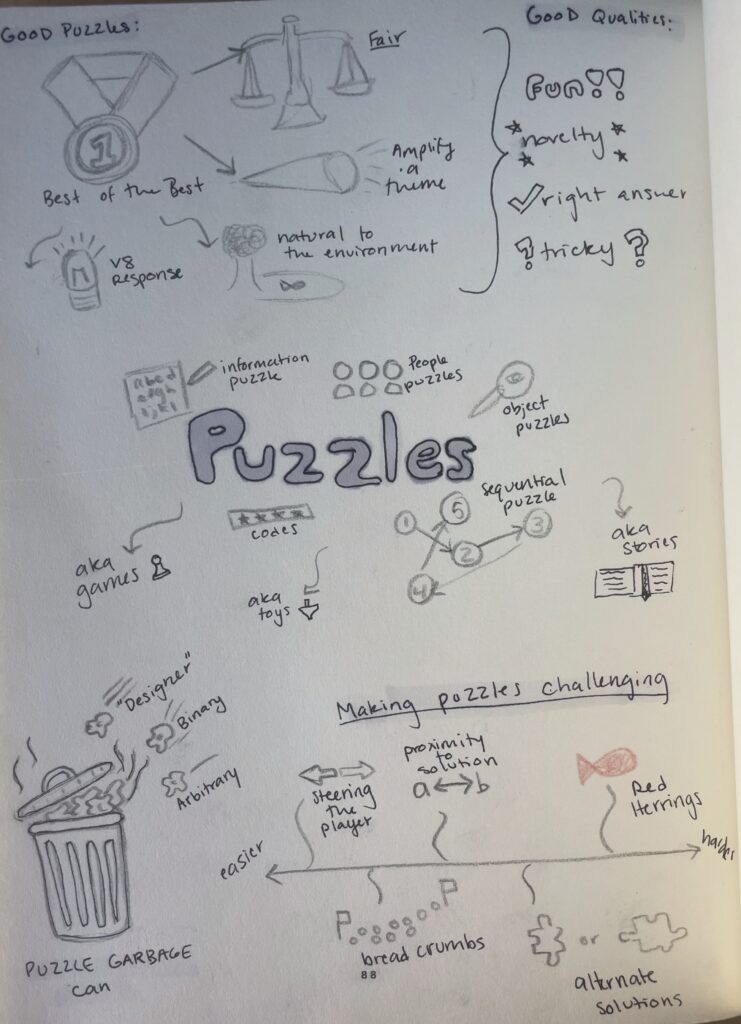 GOOD PUZZLES:
GOOD QUALITIES:
Fair
1
Best of the Best
Amplify
a
theme
V8
Response
natural to
the environment
FUN!!
novelty
right answer
? tricky ?
abcd
efgh
ijkl
information
puzzle
People
puzzles
object
puzzles
Puzzles
codes
sequential
puzzle
1
5
2
3
4
aka
games
aka
toys
aka
stories
"Designer"
Binary
Arbitrary
PUZZLE GARBAGE
can
Making puzzles challenging
steering
the
player
proximity
to
solution
a ↔ b
Red
Herrings
easier
harder
P
P
bread crumbs
88
or
alternate
solutions